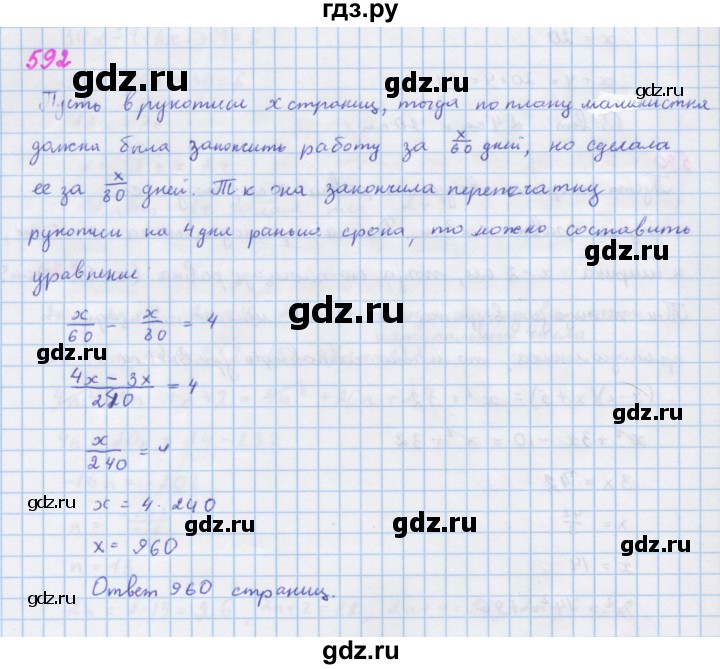 гдз.ру
592
gdz.ru gdz.ru
Пусть в рукописи x страниц, тогда по плану машинистка
должна была закончить работу за x/60 дней, но сделала
ее за x/80 дней. Т к она закончила перепечатку
рукописи на 4 дня раньше срока, то можно составить
gdz.ru
уравнение:
x/60 - x/80 = 4
gdz.ru
gdz.ru
(4x - 3x)/240 = 4
gdz.ru
x/240 = 4
x = 4 · 240
gdz.ru gdz.ru gdz.ru
x = 960
Ответ 960 страниц.
gdz.ru gdz.ru
гдз.ру